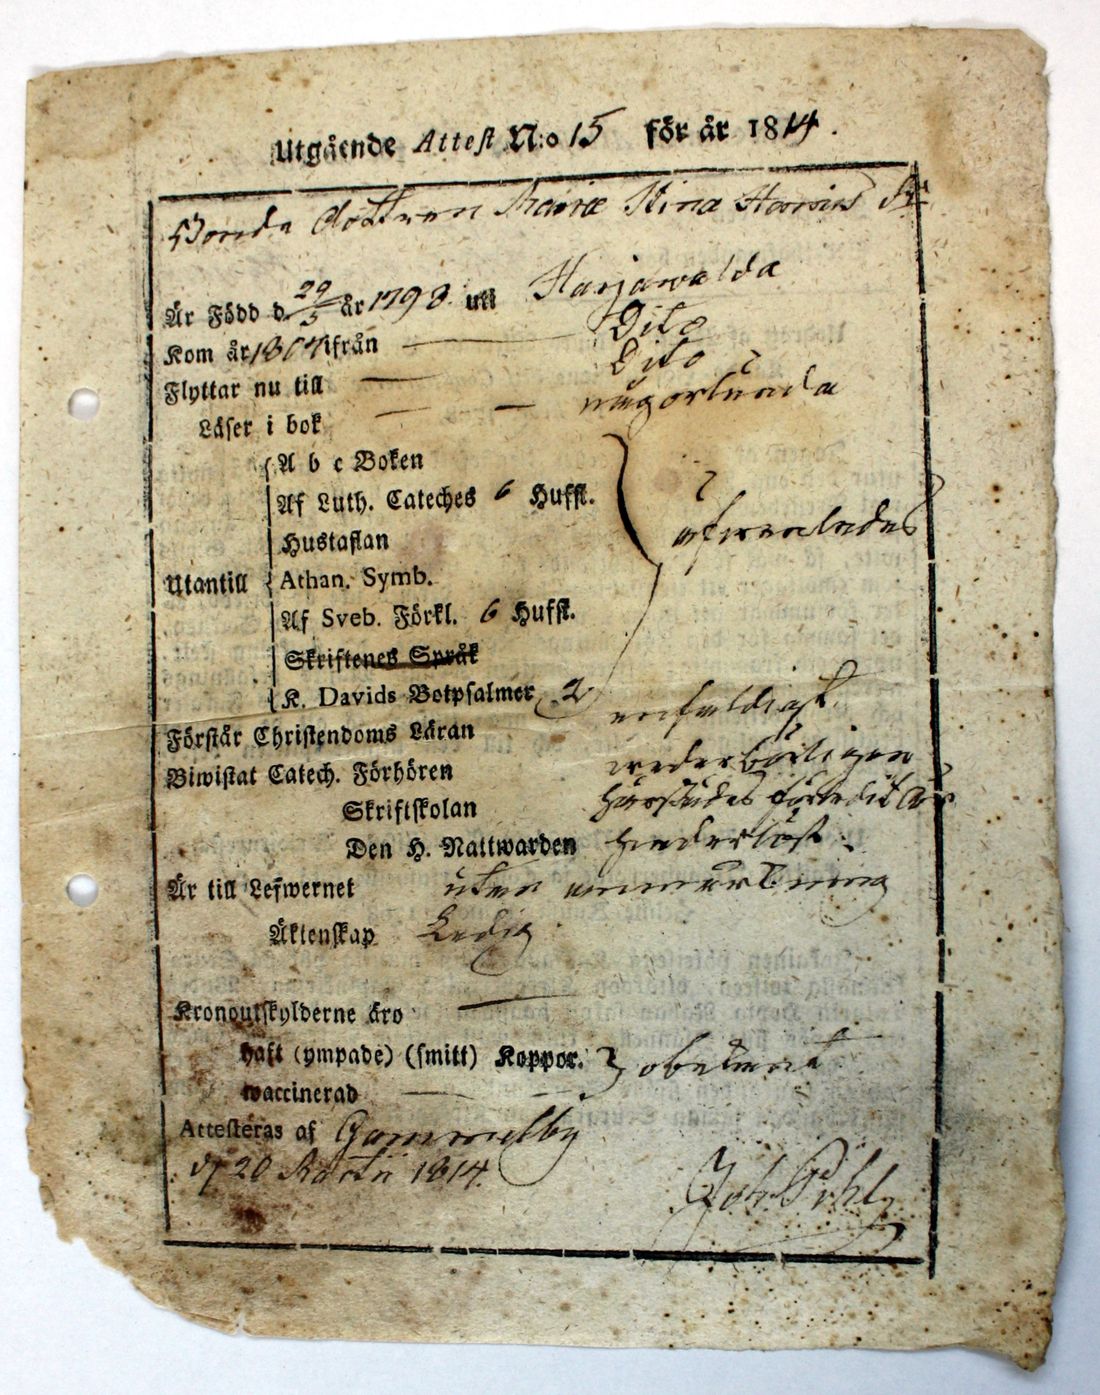 Utgående Attest N:o 15 för år 1814.
Bonde dottren Maria Stina
Är Född d. 29/5 år 1798. uti Harjawalda
Kom år 1804 ifrån — Dito
Flyttar nu till — Dito
Läser i bok — — någorlunda
A b c Boken
Af Luth. Cateches 6 Hufst.
Hustaflan afwenledes
Utantill Athan. Symb.
Af Sveb. Förkl. 6 Hufst.
Skriftenes Språk
K. Davids Botpsalmer 2
Förstår Christendoms Läran enfaldigt.
Biwistat Catech. Förhören wederbörligen
Skriftskolan
Den H. Nattwarden hinderlöst.
Är till Lefwernet utan anmärkning
Äktenskap Ledig
Kronoutskylderne äro —
haft (ympade) (smitt) Koppor. } obekant
waccinerad — —
Attesteras af Gammelby
d 20 Martii 1814. Joh. Pihl